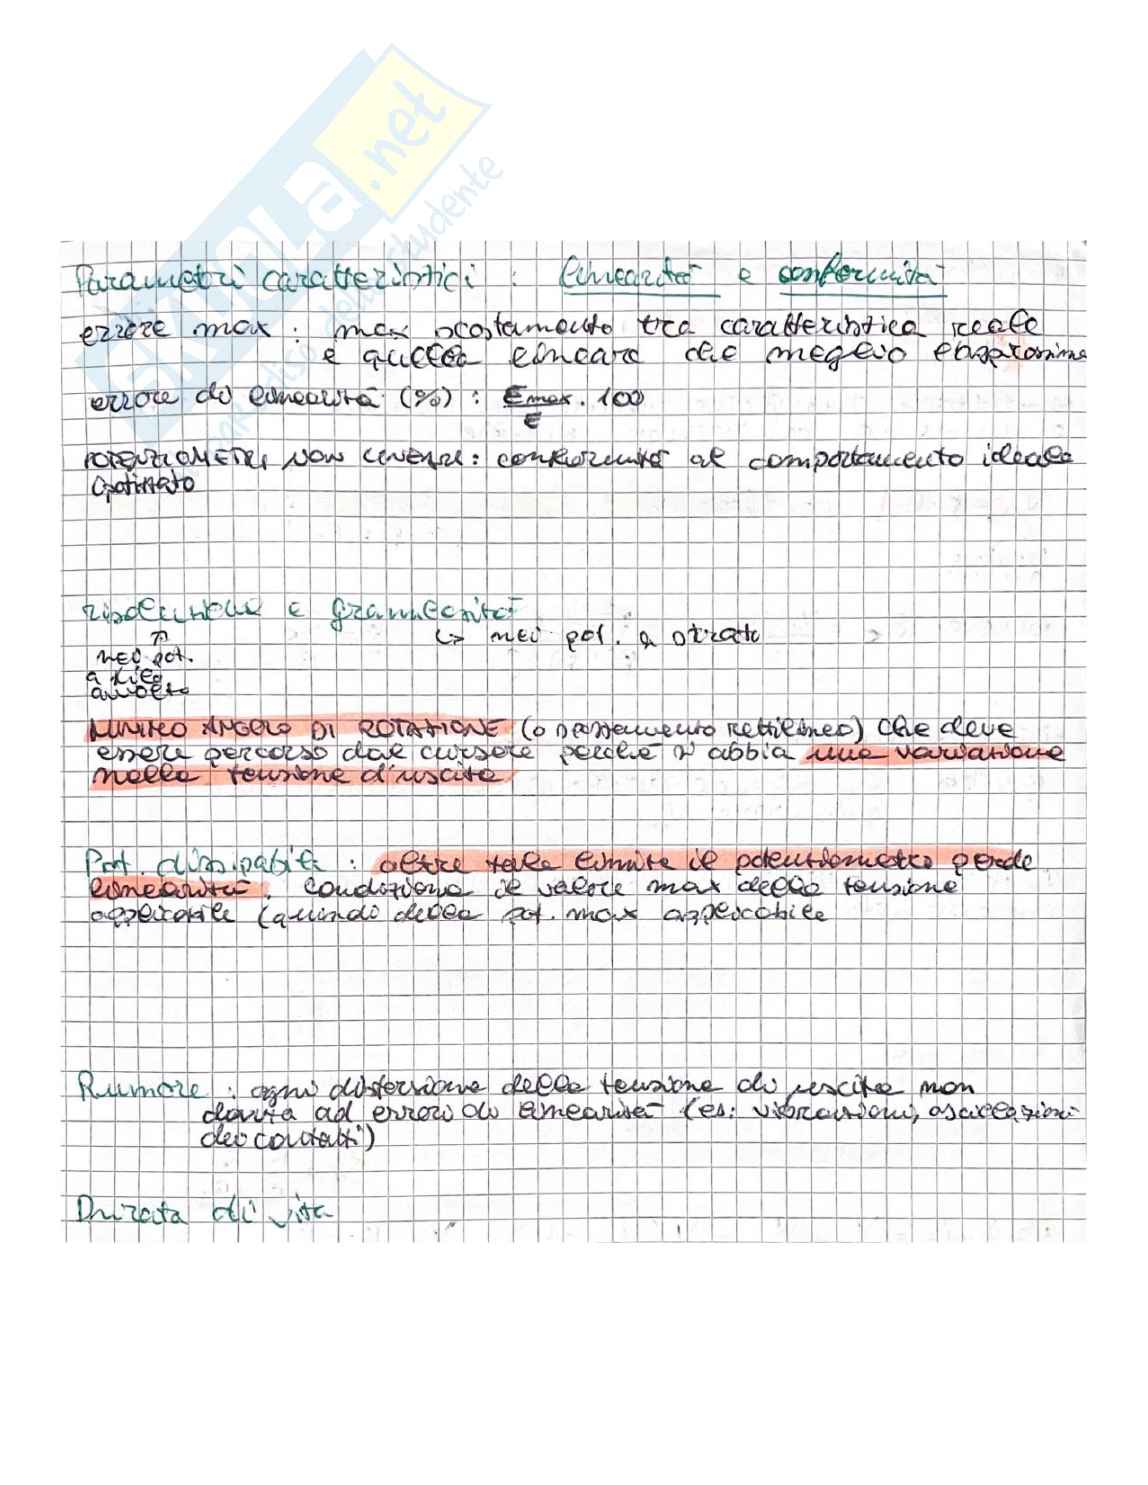 SKUOLA.net
Parametri caratteristici : linearità e conformità
errore max : max scostamento tra caratteristica reale
e quella lineare che meglio l'approssima
errore di linearità (%) : Emax/E . 100
POTENZIOMETRI NON LINEARI : conformità al comportamento ideale
ipotizzato
risoluzione e granularità
↳ nei pot. a strato
nei pot.
a filo
avvolto
MINIMO ANGOLO DI ROTAZIONE (o spostamento rettilineo) che deve
essere percorso dal cursore perché si abbia una variazione
nella tensione d'uscita
Pot. dissipabile : oltre tale limite il potenziometro perde
linearità. Condiziona il valore max della tensione
applicabile (quindi della pot. max applicabile
Rumore : ogni distorsione della tensione di uscita non
dovuta ad errori di linearità (es: vibrazioni, oscillazioni
dei contatti)
Durata di vita